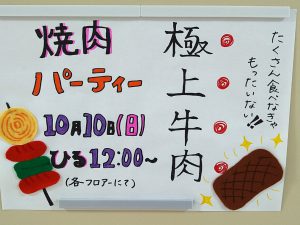 たくさん食べなきゃ
もったいない!!
極上牛肉
焼肉
パーティー
10月10日(日)
ひる12:00~
(各フロアーにて)